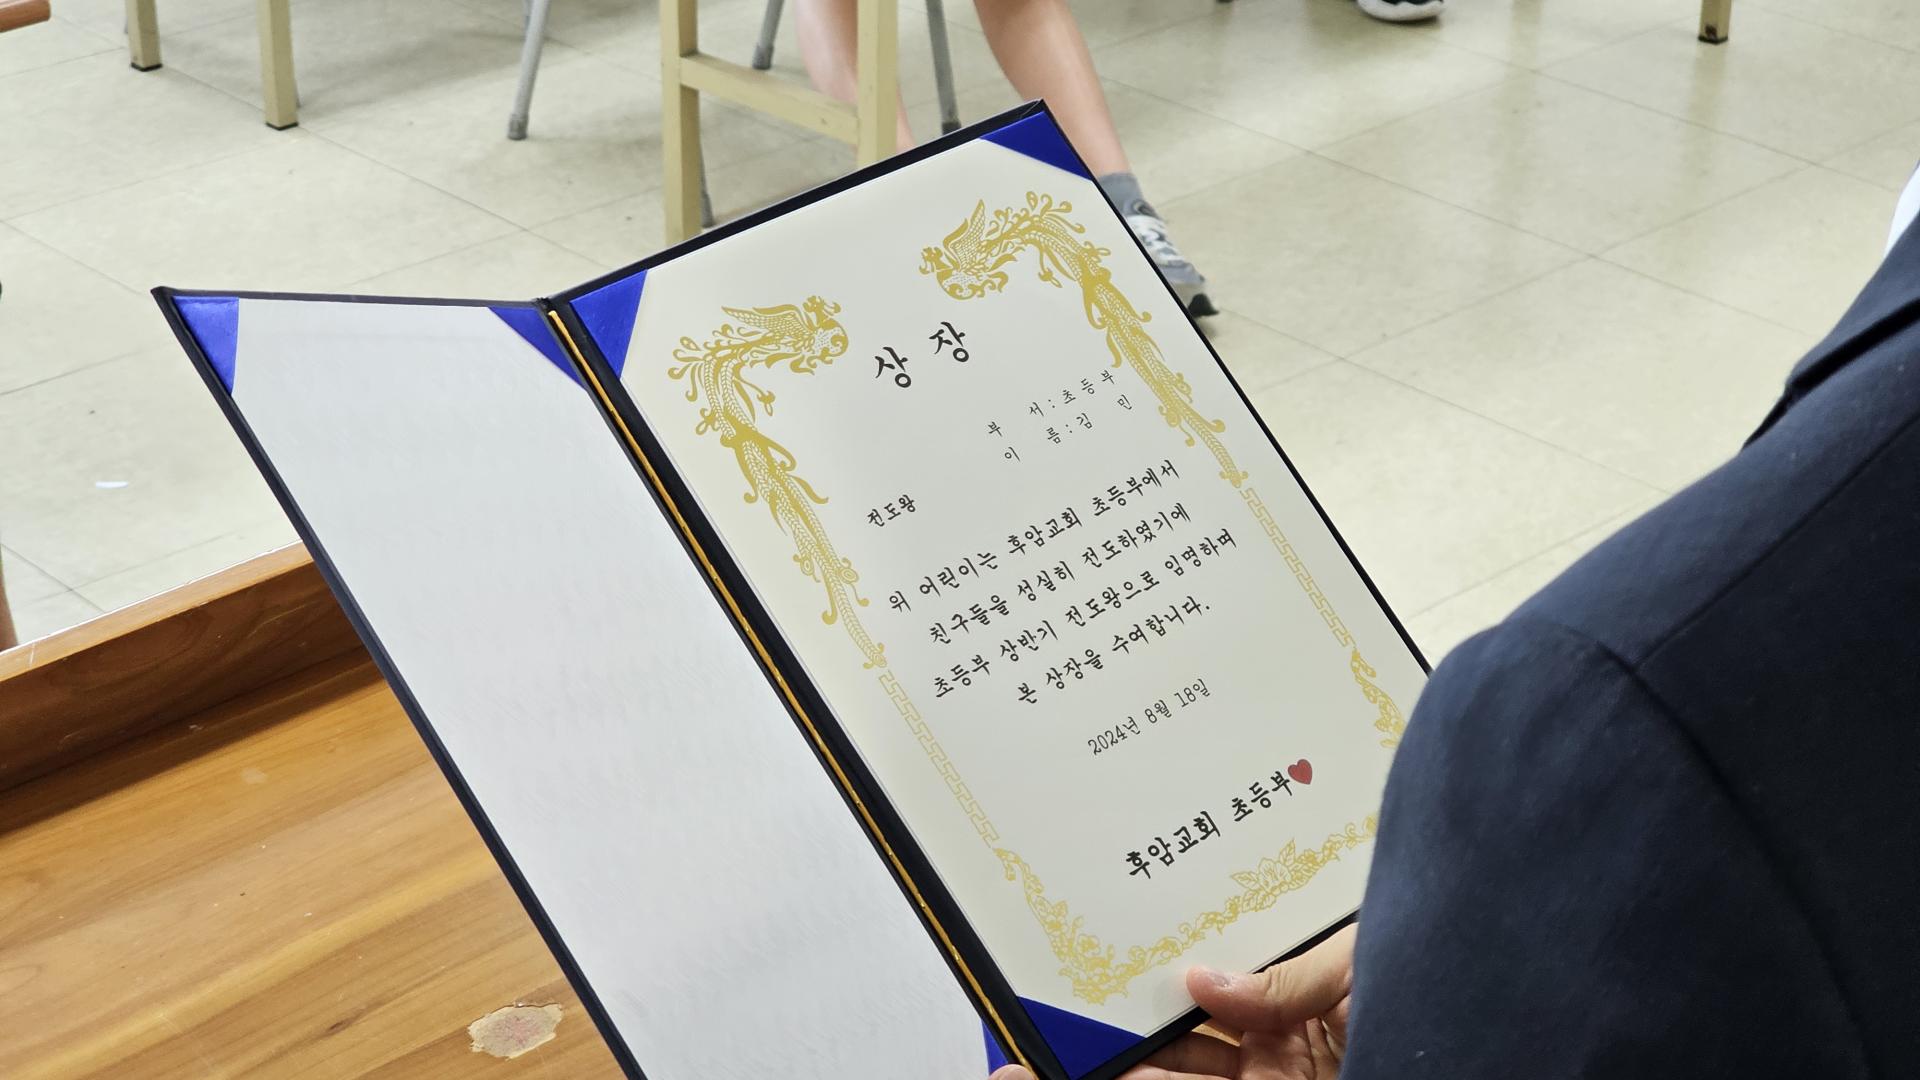 상 장
부 서 : 초 등 부
이 름 : 김 민
전도왕
위 어린이는 후암교회 초등부에서
친구들을 성실히 전도하였기에
초등부 상반기 전도왕으로 임명하며
본 상장을 수여합니다.
2024년 8월 18일
후암교회 초등부❤